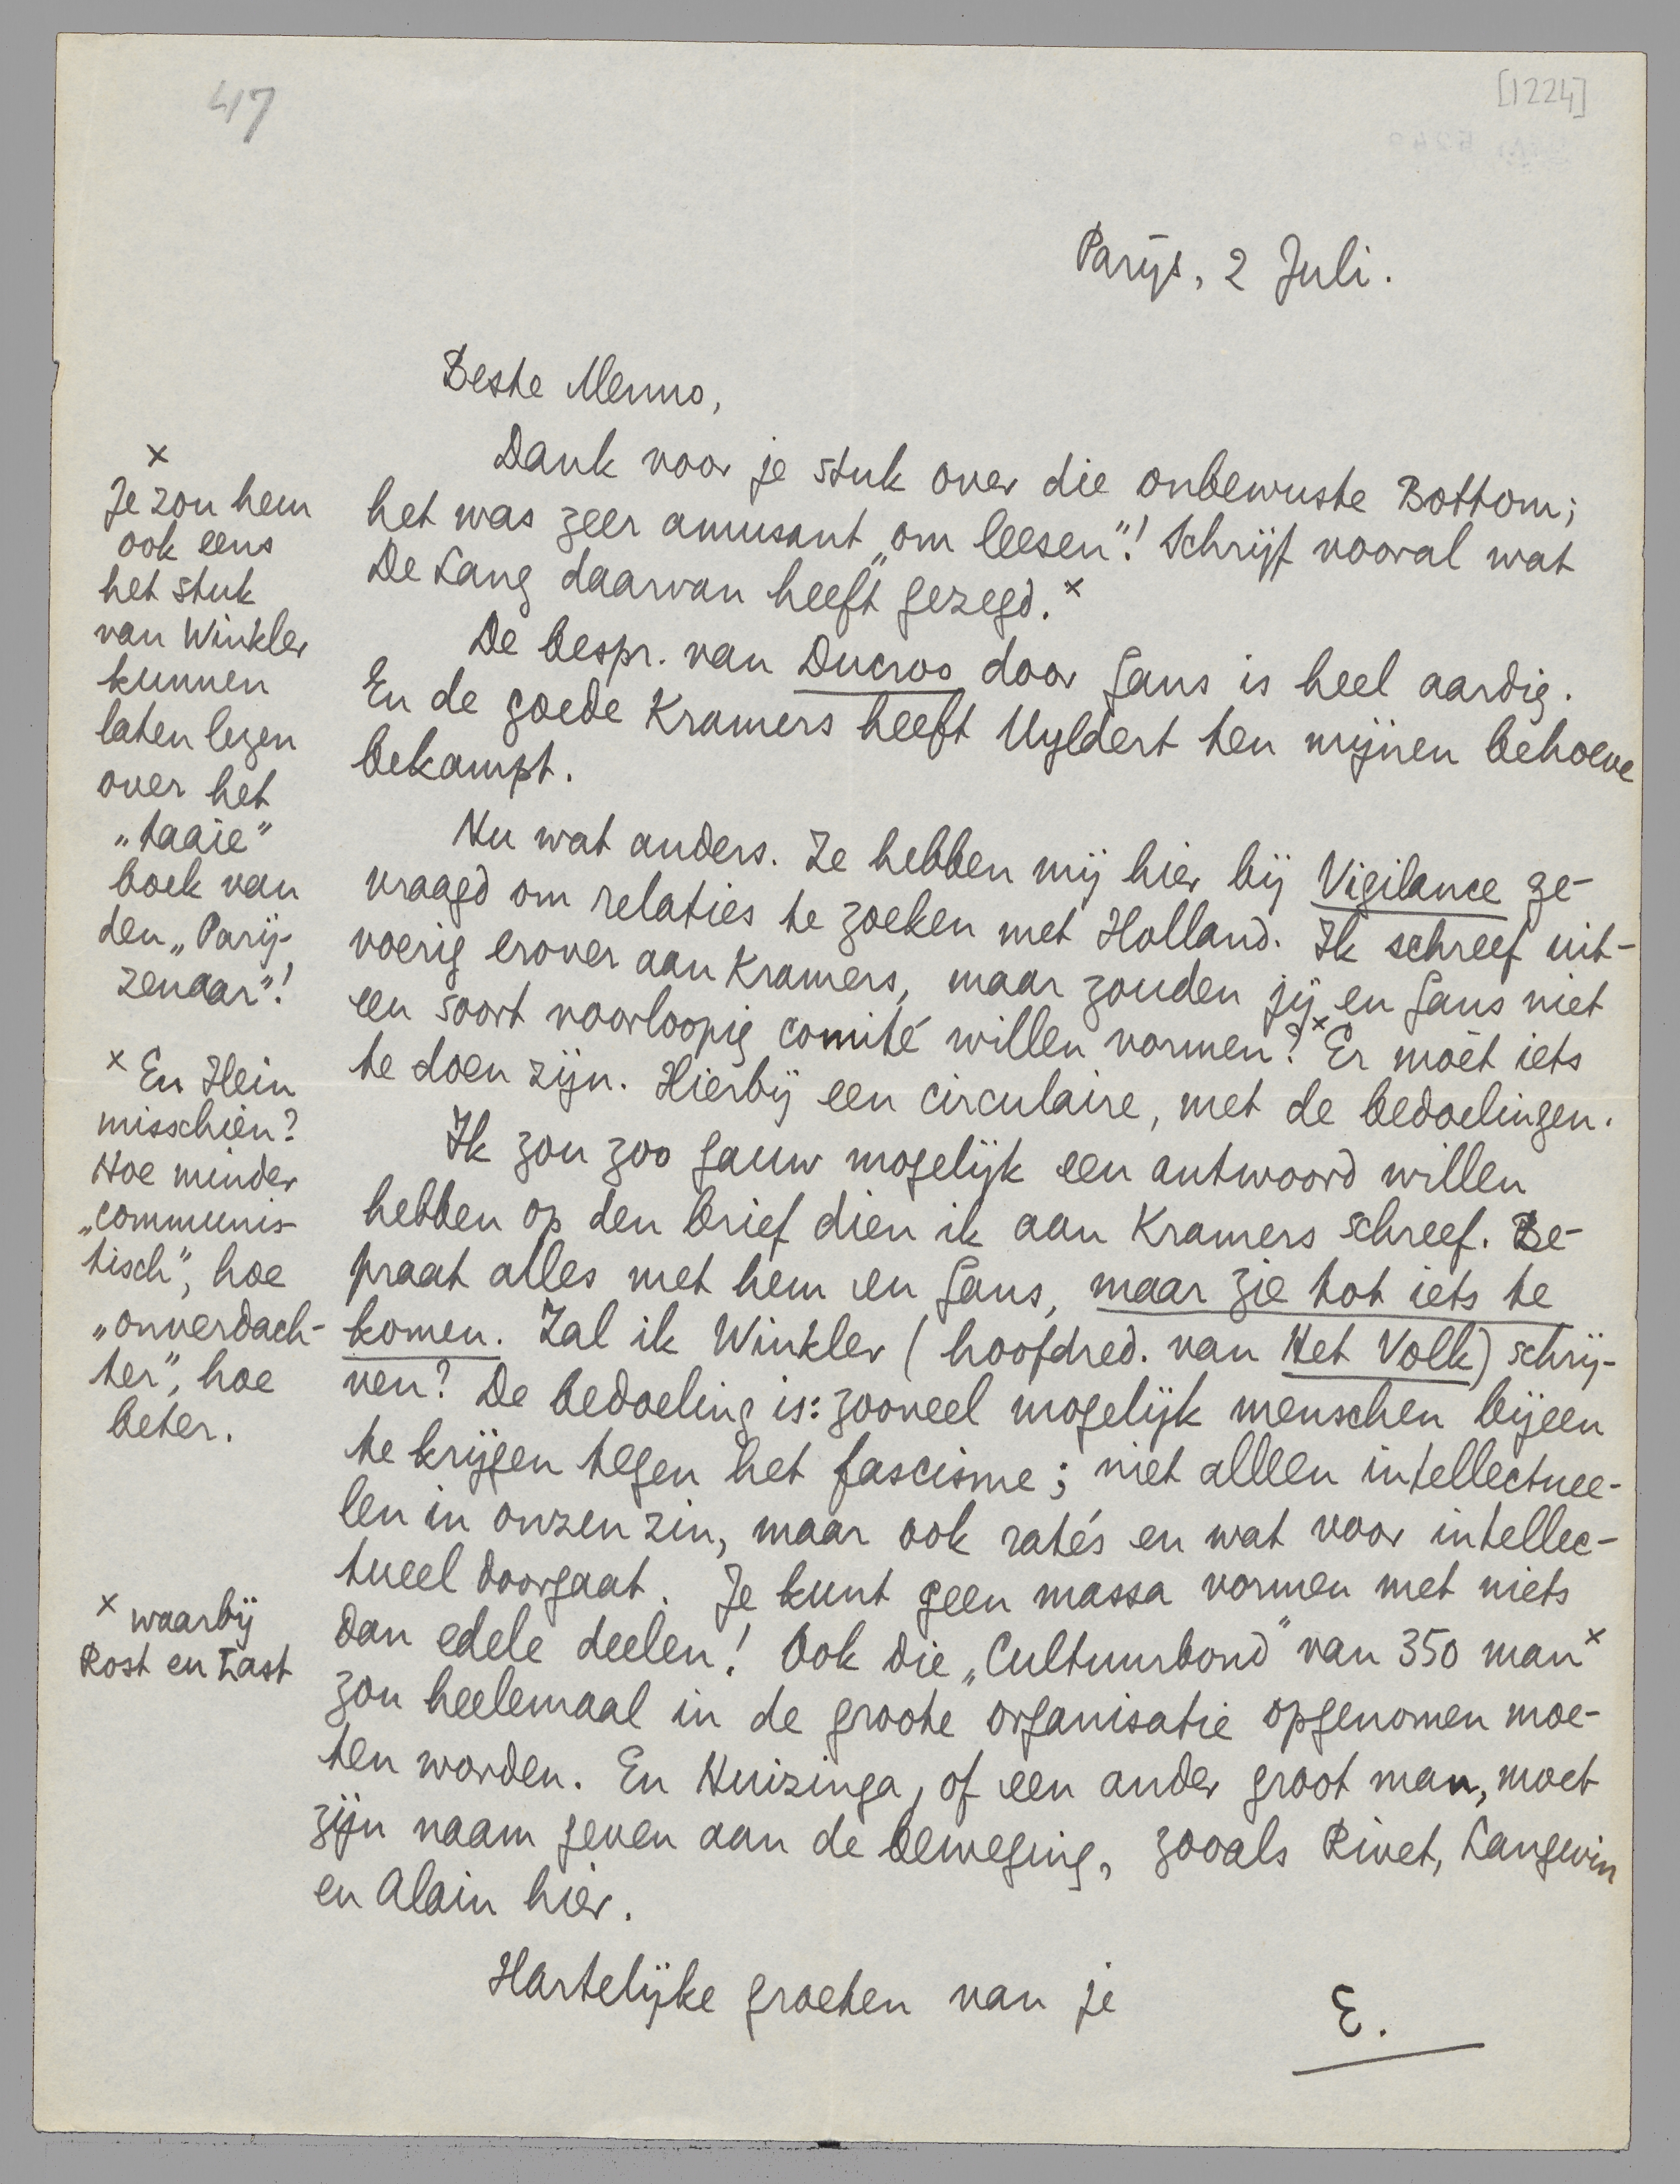 47
[1224]
Parijs, 2 Juli.
Beste Menno,
Dank voor je stuk over die onbewuste Bottom;
het was zeer amusant „om leesen"! Schrijf vooral wat
De Lang daarvan heeft gezegd.×
De bespr. van Ducroo door Gans is heel aardig.
En de goede Kramers heeft Uyldert ten mijnen behoeve
bekampt.
Nu wat anders. Ze hebben mij hier bij Vigilance ge-
vraagd om relaties te zoeken met Holland. Ik schreef uit-
voerig erover aan Kramers, maar zouden jij en Gans niet
een soort voorloopig comité willen vormen?× Er moèt iets
te doen zijn. Hierbij een circulaire, met de bedoelingen.
Ik zou zoo gauw mogelijk een antwoord willen
hebben op den brief dien ik aan Kramers schreef. Be-
praat alles met hem en Gans, maar zie tot iets te
komen. Zal ik Winkler (hoofdred. van Het Volk) schrij-
ven? De bedoeling is: zooveel mogelijk menschen bijeen
te krijgen tegen het fascisme; niet alleen intellectuee-
len in onzen zin, maar ook ratés en wat voor intellec-
tueel doorgaat. Je kunt geen massa vormen met niets
dan edele deelen! Ook die „Cultuurbond" van 350 man×
zou heelemaal in de groote organisatie opgenomen moe-
ten worden. En Huizinga, of een ander groot man, moet
zijn naam geven aan de beweging, zooals Rivet, Langevin
en Alain hier.
Hartelijke groeten van je
E.
×
Je zou hem
ook eens
het stuk
van Winkler
kunnen
laten lezen
over het
„taaie"
boek van
den „Parij-
zenaar"!
× En Hein
misschien?
Hoe minder
„communis-
tisch", hoe
„onverdach-
ter", hoe
beter.
× waarbij
Rost en Last